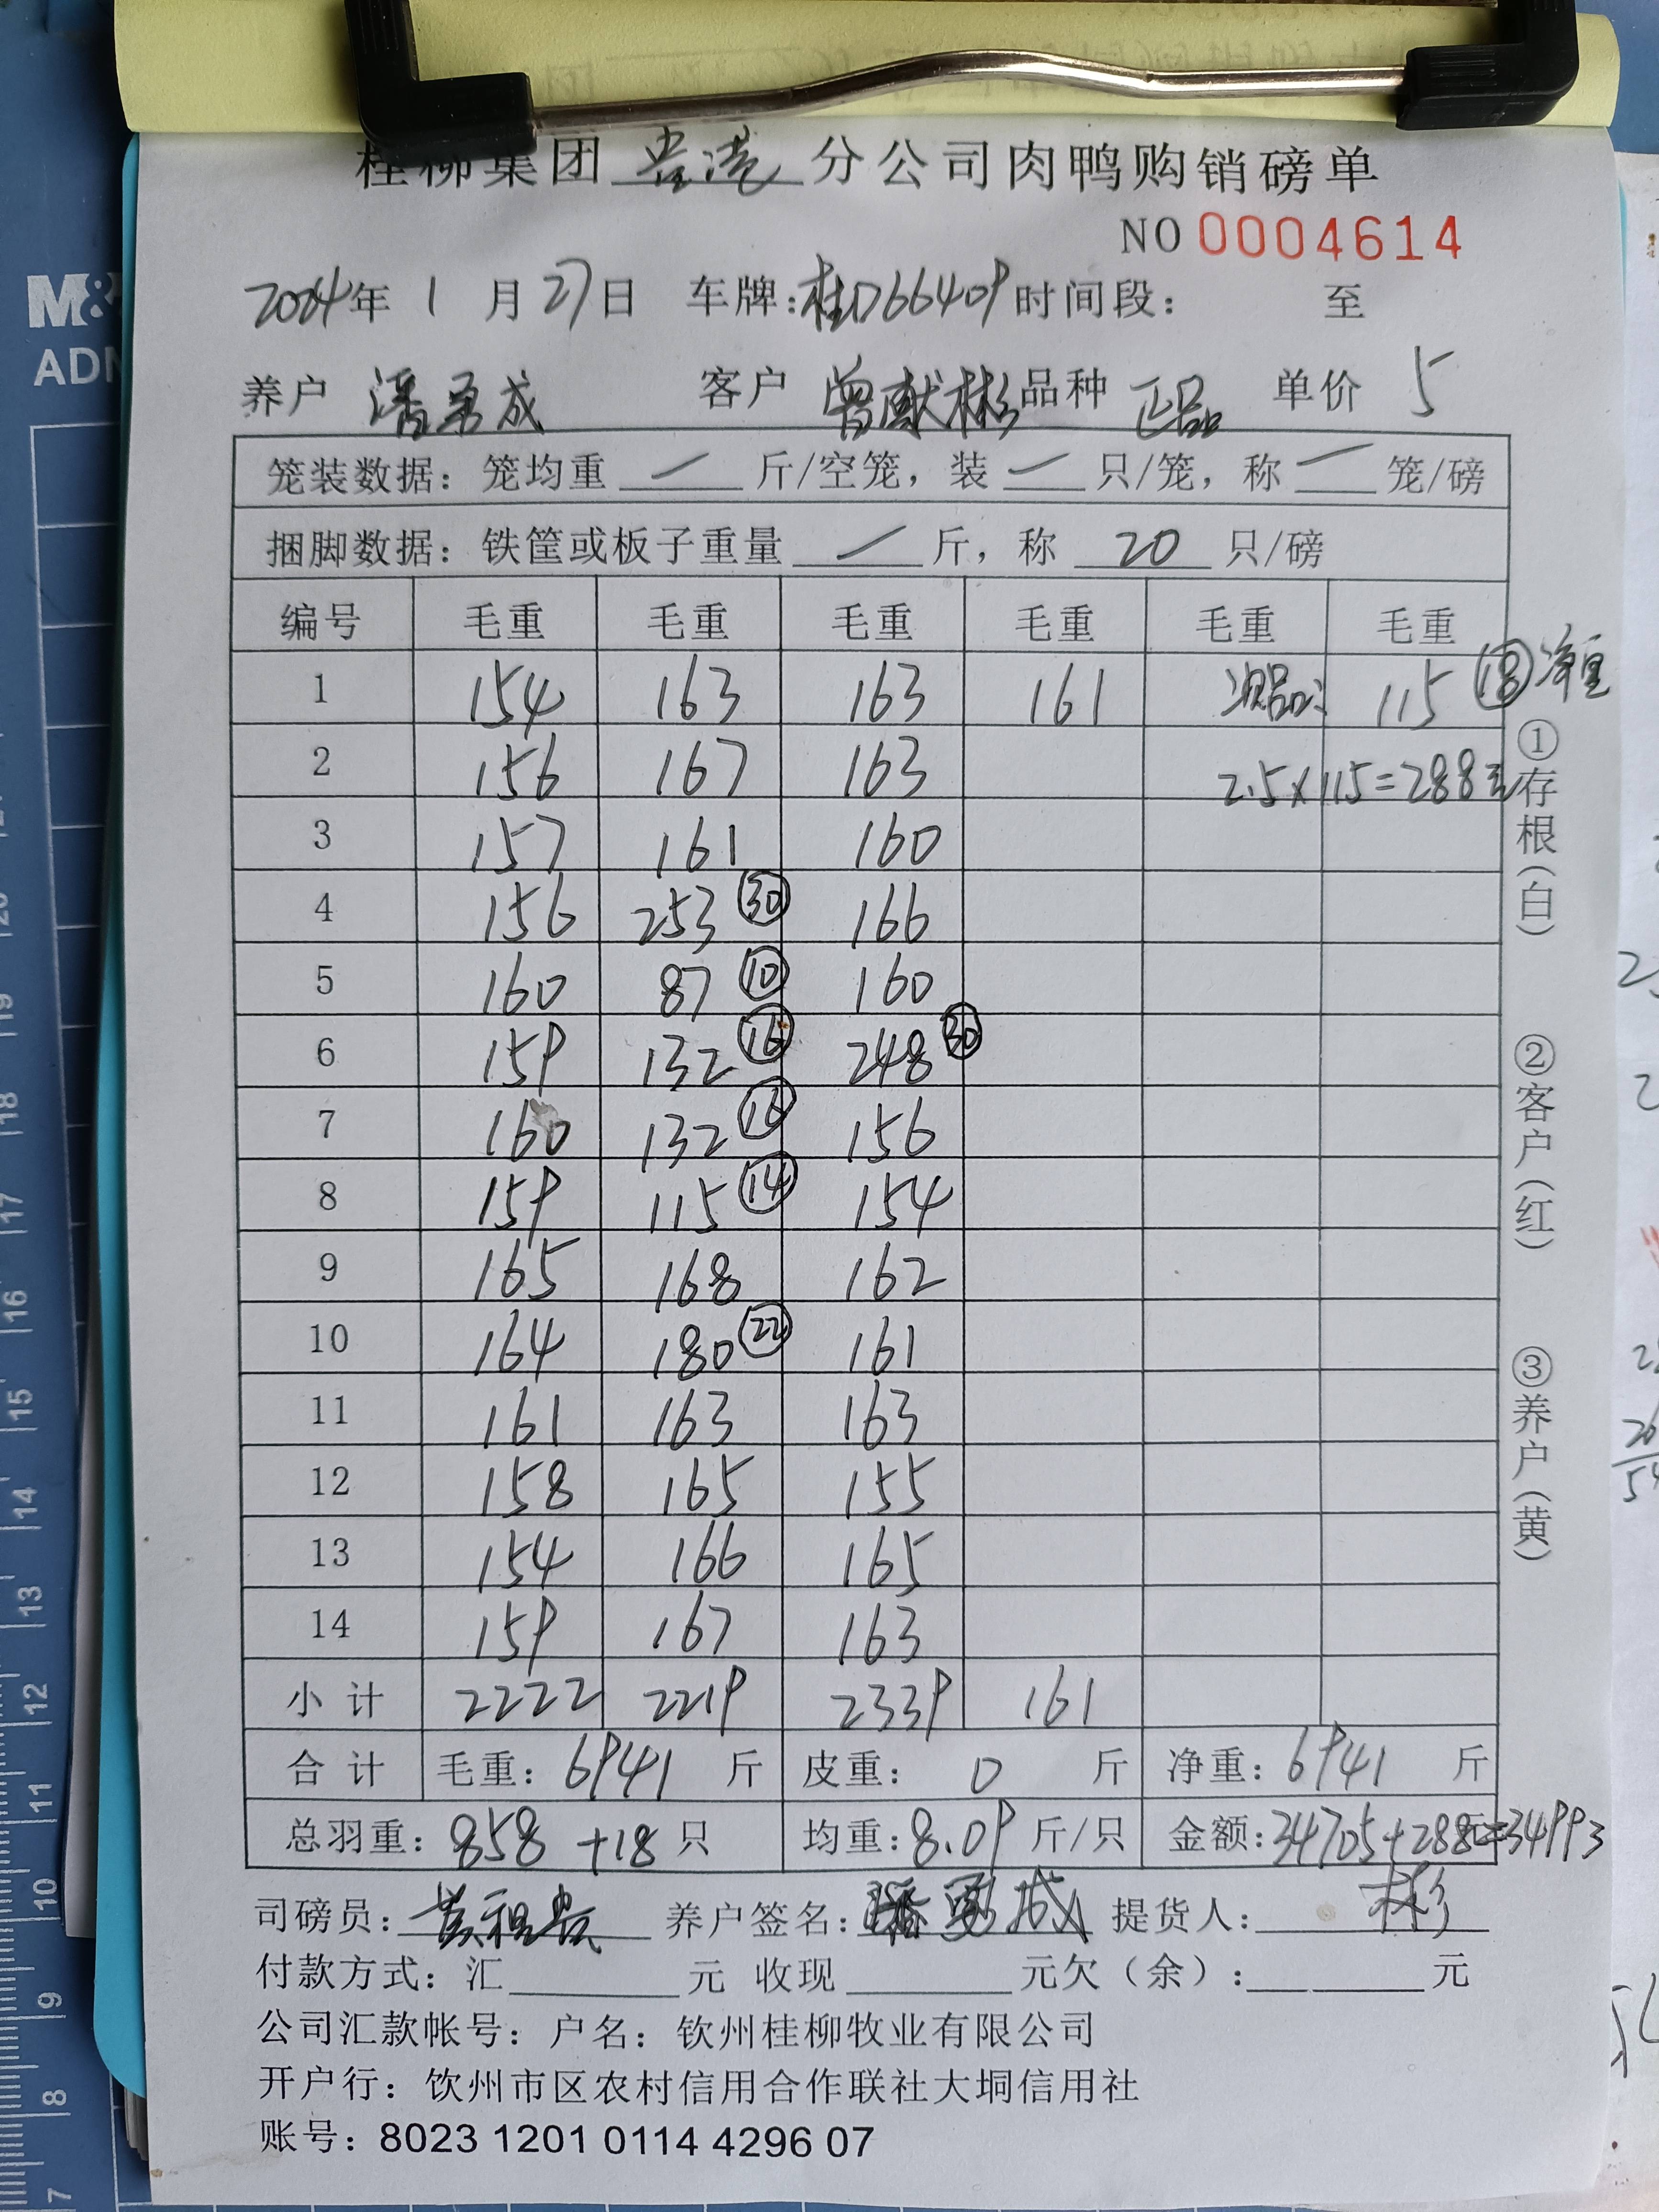 桂柳集团 贵港 分公司肉鸭购销磅单
NO 0004614
2024年 1 月 27日 车牌:桂D66409 时间段: 至
养户 潘勇成 客户 曾献彬 品种 正品 单价 5
笼装数据: 笼均重 — 斤/空笼, 装 — 只/笼, 称 — 笼/磅
捆脚数据: 铁筐或板子重量 — 斤, 称 20 只/磅
编号 毛重 毛重 毛重 毛重 毛重 毛重
1 154 163 163 161 次品: 115 ⑱ 净重
2 156 167 163 2.5×115=288元
3 157 161 160
4 156 253 ㉚ 166
5 160 87 ⑩ 160
6 159 132 ⑯ 248 ㉚
7 160 132 ⑯ 156
8 159 115 ⑭ 154
9 165 168 162
10 164 180 ㉒ 161
11 161 163 163
12 158 165 155
13 154 166 165
14 159 167 163
小 计 2222 2219 2339 161
合 计 毛重: 6941 斤 皮重: 0 斤 净重: 6941 斤
总羽重: 858 +18 只 均重: 8.09 斤/只 金额: 34705+288元=34993
司磅员: 黄祖贵 养户签名: 潘勇成 提货人: 彬
付款方式: 汇 元 收现 元欠(余): 元
公司汇款帐号: 户名: 钦州桂柳牧业有限公司
开户行: 钦州市区农村信用合作联社大垌信用社
账号: 8023 1201 0114 4296 07
①存根(白)
②客户(红)
③养户(黄)
M&
ADN